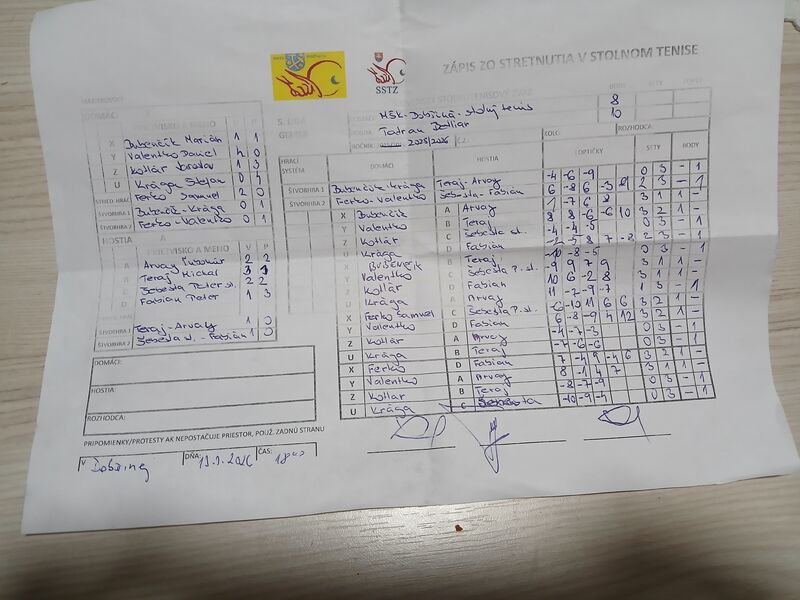 ZÁPIS ZO STRETNUTIA V STOLNOM TENISE
SSTZ
5. LIGA
MŠK Dobšiná - stolný tenis 8
Tatran Betliar 10
ROČNÍK 2025/2026 Č.Z.
ROZHODCA:
DOMÁCI
PRIEZVISKO A MENO V P
X Bubenčík Marián 1 1
Y Valentko Daniel 4 0
Z Kollár Jaroslav 1 3
U Krága Štefan 0 4
Ferko Samuel 2 0
ŠTVORHRA 1 Bubenčík - Krága 0 1
ŠTVORHRA 2 Ferko - Valentko 0 1
HOSTIA
PRIEZVISKO A MENO V P
A Arvay Ľubomír 2 2
B Teraj Michal 3 1
C Šebesta Peter st. 2 2
D Fabian Peter 1 3
ŠTVORHRA 1 Teraj - Arvay 1 0
ŠTVORHRA 2 Šebesta st. - Fabián 1 0
HRACÍ SYSTÉMA DOMÁCI HOSTIA LOPTIČKY SETY BODY
ŠTVORHRA 1 Bubenčík Krága Teraj - Arvay -4 -6 -9 0 3 - 1
ŠTVORHRA 2 Ferko - Valentko Šebesta - Fabián 2 3 - 1
X Bubenčík A Arvay 1 -7 6 8 3 1 1 -
Y Valentko B Teraj 8 8 -6 -6 10 3 2 1 -
Z Kollár C Šebesta st. -4 -4 -5 0 3 - 1
U Krága D Fabián 2 3 - 1
X Bubenčík B Teraj -10 -8 -5 0 3 - 1
Y Valentko C Šebesta P. st. -9 9 7 9 3 1 1 -
Z Kollár D Fabian 10 6 -2 8 3 1 1 -
U Krága A Arvay 11 -2 -9 -7 1 3 - 1
X Ferko Samuel C Šebesta P. st. -6 -10 11 6 6 3 2 1 -
Y Valentko D Fabian 6 -8 -9 4 12 3 2 1 -
Z Kollár A Arvay -4 -7 -3 0 3 - 1
U Krága B Teraj -7 -6 -6 0 3 - 1
X Ferko D Fabian 7 -4 9 -4 6 3 2 1 -
Y Valentko A Arvay 8 -1 4 7 3 1 1 -
Z Kollár B Teraj -8 -7 -9 0 3 - 1
U Krága C Šebesta -10 -9 -4 0 3 - 1
DOMÁCI:
HOSTIA:
ROZHODCA:
PRIPOMIENKY/PROTESTY AK NEPOSTAČUJE PRIESTOR, POUŽ. ZADNÚ STRANU
V Dobšinej DŇA: ČAS: 18⁰⁰